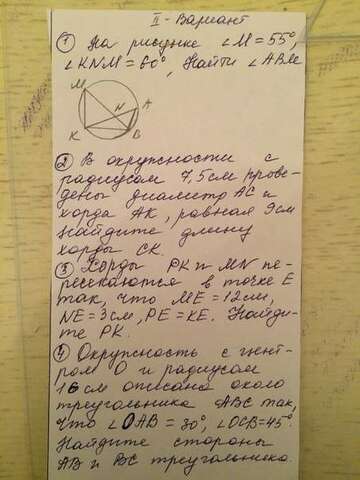 II - Вариант
① На рисунке ∠M = 55°,
∠KNM = 60°, Найти ∠ABM
M
N
A
K
B
② В окружности с
радиусом 7,5 см прове-
дены диаметр AC и
хорда AK, равная 9 см
Найдите длину
хорды CK.
③ Хорды PK и MN пе-
ресекаются в точке E
так, что ME = 12 см,
NE = 3 см, PE = KE. Найди-
те PK.
④ Окружность с цент-
ром O и радиусом
16 см описана около
треугольника ABC так,
что ∠OAB = 30°, ∠OCB = 45°
Найдите стороны
AB и BC треугольника.